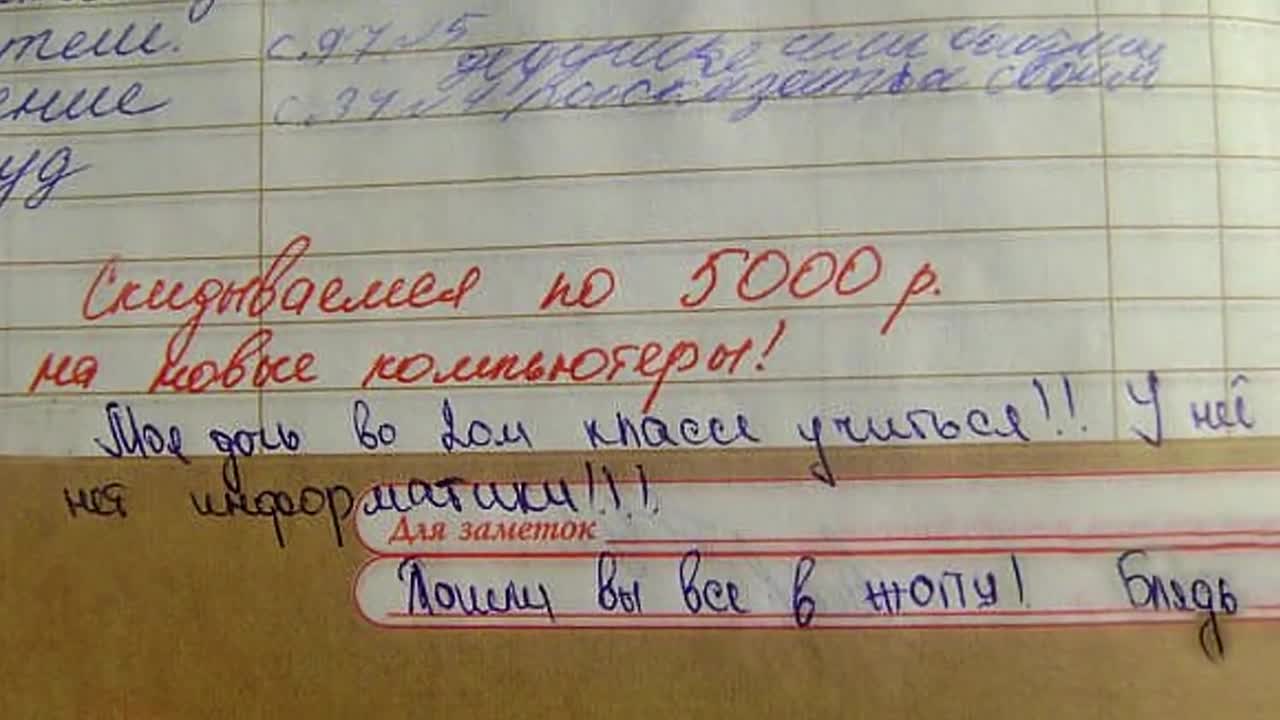 с.97 №5
ение с.37 №4 рассказать о своём
уд
Скидываемся по 5000 р.
на новые компьютеры!
Моя дочь во 2ом классе учиться!! У неё
нет информатики!!!
Для заметок
Пошли вы все в жопу! Блядь